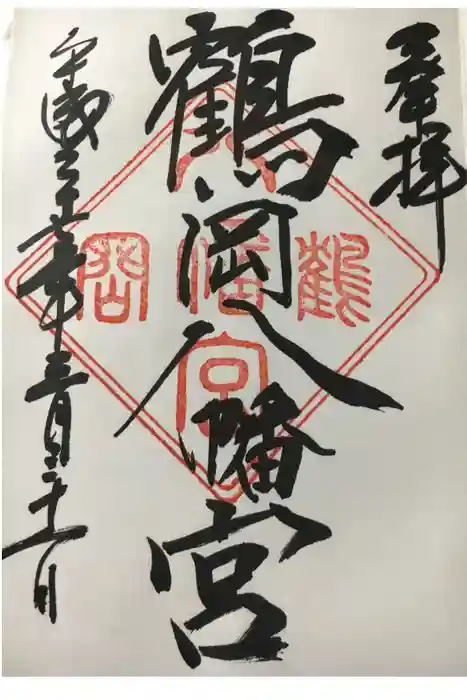 奉拝
鶴岡八幡宮
平成二十七年三月二十一日
鶴岡八幡宮